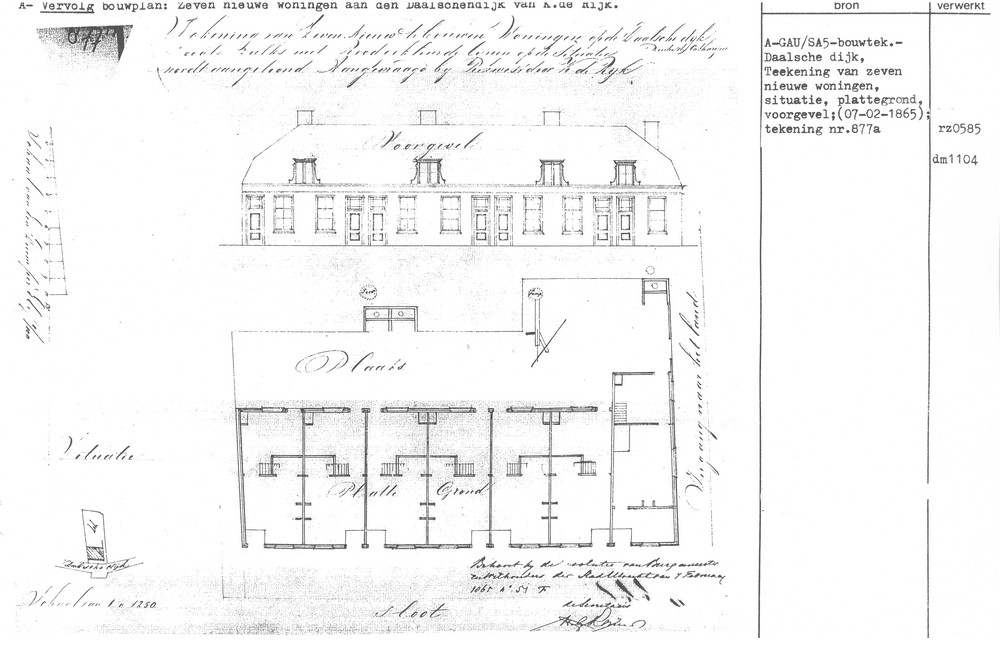 A- Vervolg bouwplan: Zeven nieuwe woningen aan den Daalschendijk van K.de Rijk.
bron
verwerkt
877
Teekening van Zeven Nieuw te bouwen Woningen op de Daalsche dijk
zoals Zulks met Roode op de Situatie
wordt aangetoond Aangevraagd by de Ryk
A-GAU/SA5-bouwtek.-
Daalsche dijk,
Teekening van zeven
nieuwe woningen,
situatie, plattegrond,
voorgevel;(07-02-1865);
tekening nr.877a
rz0585
dm1104
Voorgevel
Plaats
Uitgang naar het land
Situatie
Platte Grond
Daalsche dijk
Schaal van 1 a 1250
Behoort by de resolutie van burgemeester
en Wethouders der Stad Utrecht van 7 February
1865 No 51 F
de Secretaris
Sloot